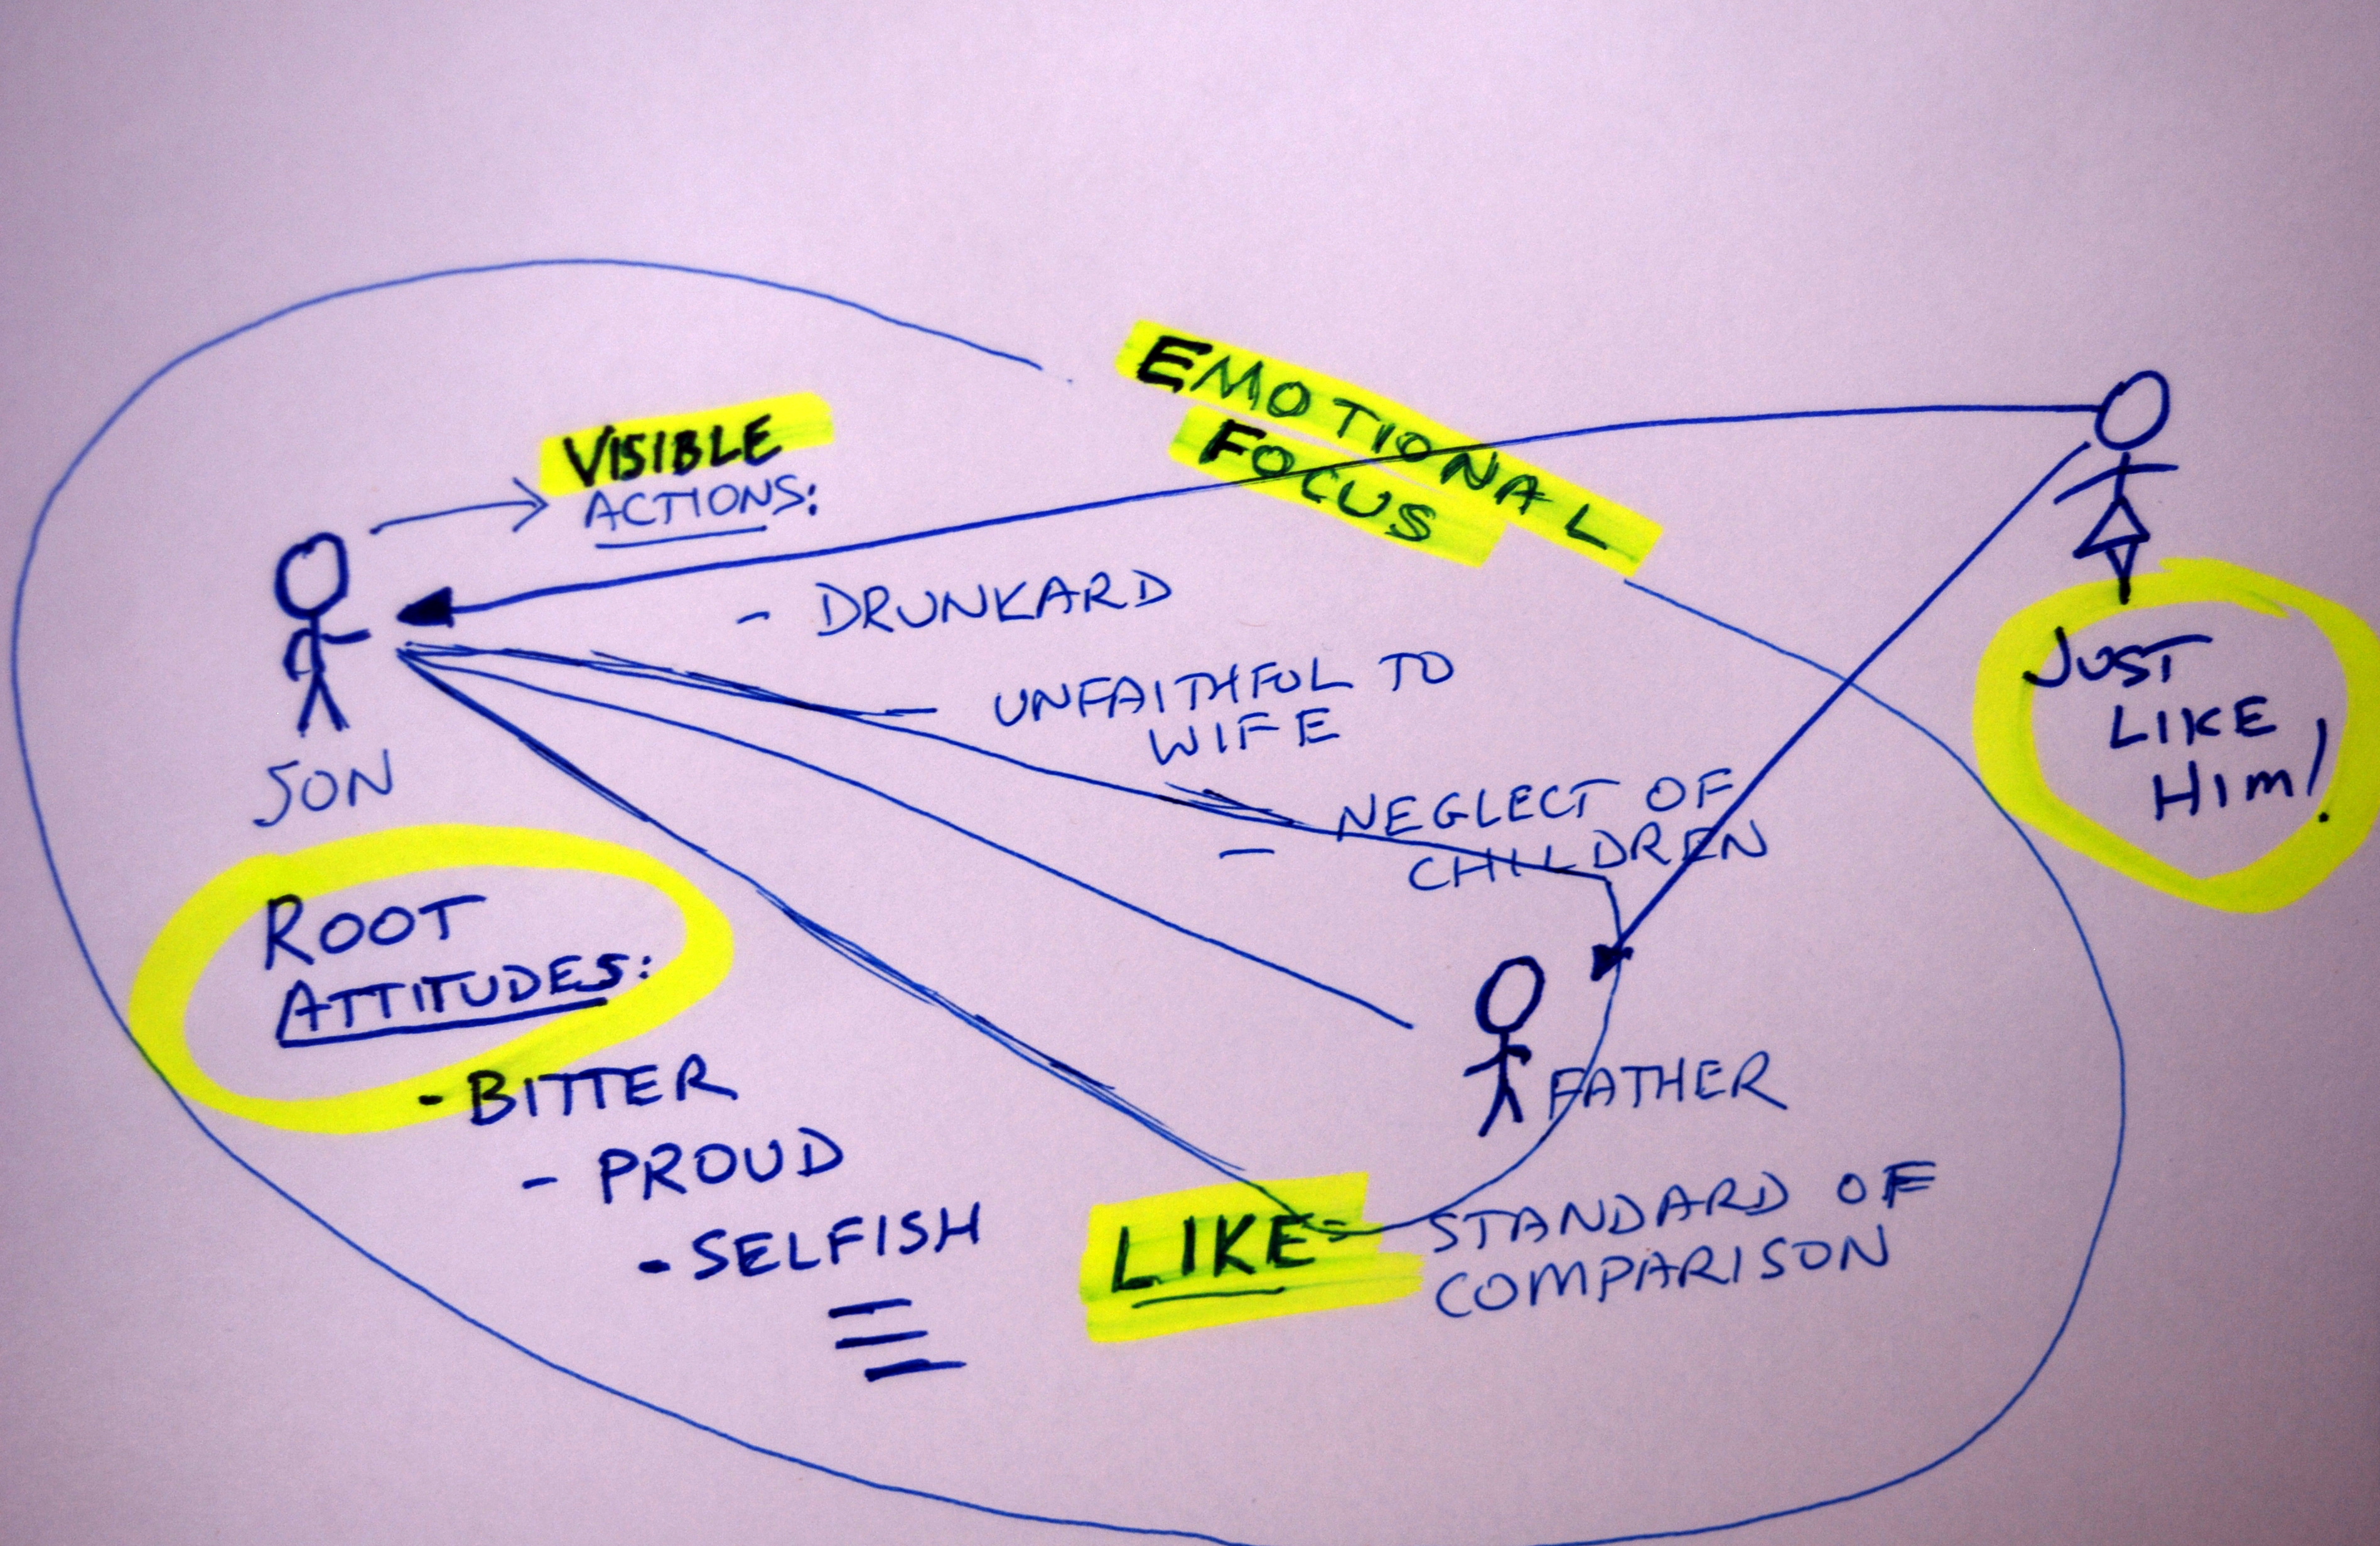 EMOTIONAL
FOCUS
VISIBLE
ACTIONS:
- DRUNKARD
- UNFAITHFUL TO
WIFE
- NEGLECT OF
CHILDREN
JUST
LIKE
HIM!
SON
FATHER
ROOT
ATTITUDES:
- BITTER
- PROUD
- SELFISH
LIKE =
STANDARD OF
COMPARISON